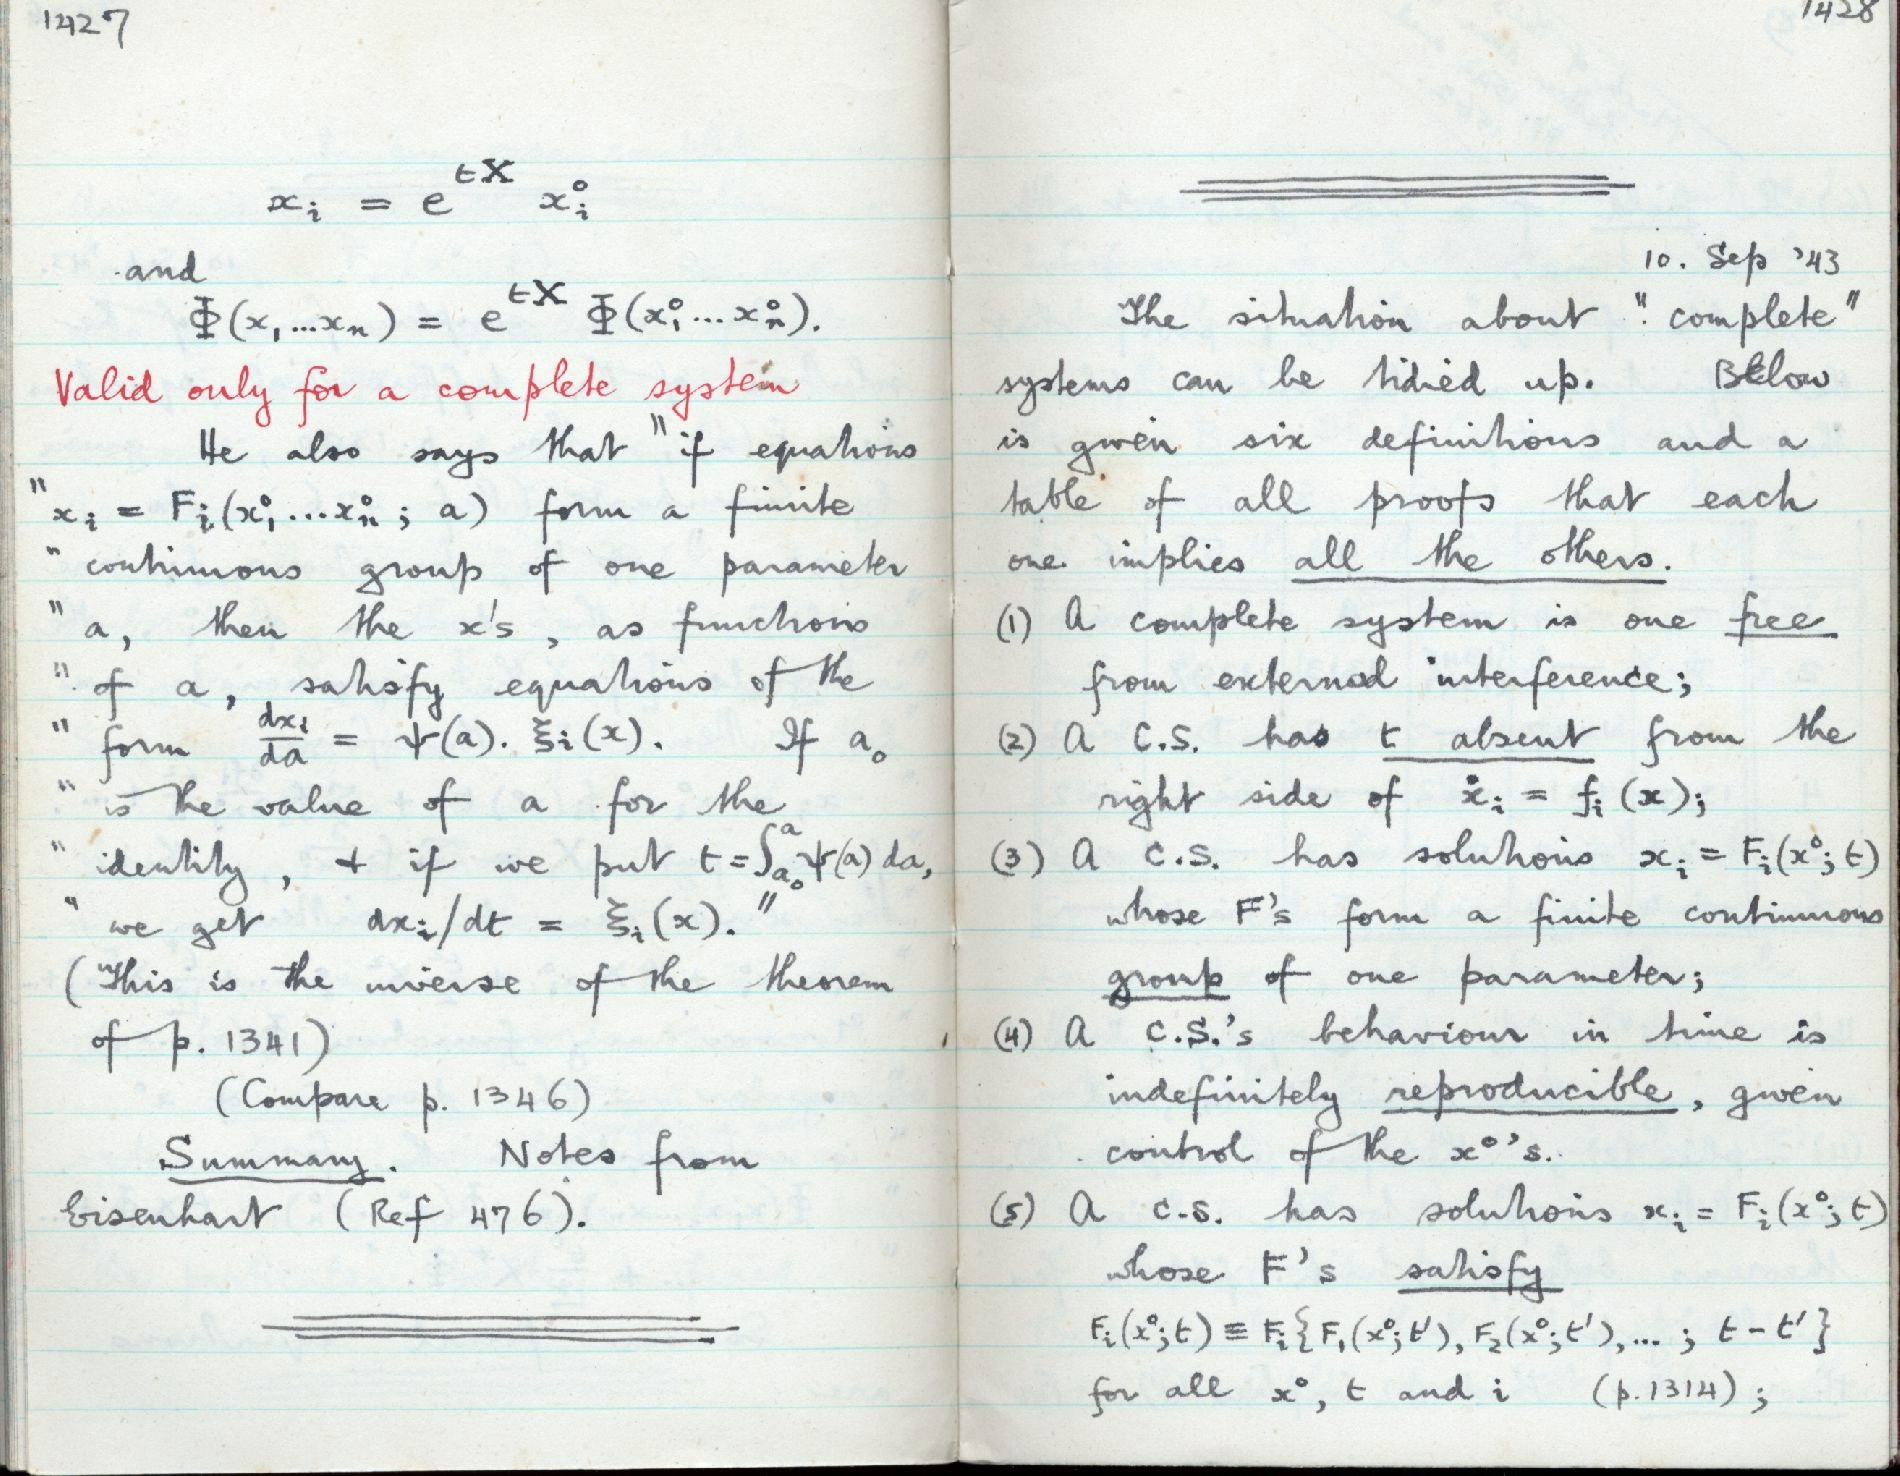 1427
xᵢ = e^{tX} xᵢ⁰
and
Φ(x₁...xₙ) = e^{tX} Φ(x₁⁰...xₙ⁰).
Valid only for a complete system
He also says that "if equations
"xᵢ = Fᵢ(x₁⁰...xₙ⁰; a) form a finite
"continuous group of one parameter
"a, then the x's, as functions
"of a, satisfy equations of the
"form dxᵢ/da = ψ(a). ξᵢ(x). If a₀
"is the value of a for the
"identity, & if we put t = ∫_{a₀}^{a} ψ(a) da,
"we get dxᵢ/dt = ξᵢ(x)."
(This is the inverse of the theorem
of p. 1341)
(Compare p. 1346)
Summary. Notes from
Eisenhart (Ref 476).
1428
10. Sep '43
The situation about "complete"
systems can be tidied up. Below
is given six definitions and a
table of all proofs that each
one implies all the others.
(1) A complete system is one free
from external interference;
(2) A C.S. has t absent from the
right side of ẋᵢ = fᵢ(x);
(3) A C.S. has solutions xᵢ = Fᵢ(x⁰; t)
whose F's form a finite continuous
group of one parameter;
(4) A C.S.'s behaviour in time is
indefinitely reproducible, given
control of the x⁰'s.
(5) A C.S. has solutions xᵢ = Fᵢ(x⁰; t)
whose F's satisfy
Fᵢ(x⁰; t) ≡ Fᵢ{F₁(x⁰; t'), F₂(x⁰; t'), ... ; t - t'}
for all x⁰, t and i (p. 1314);